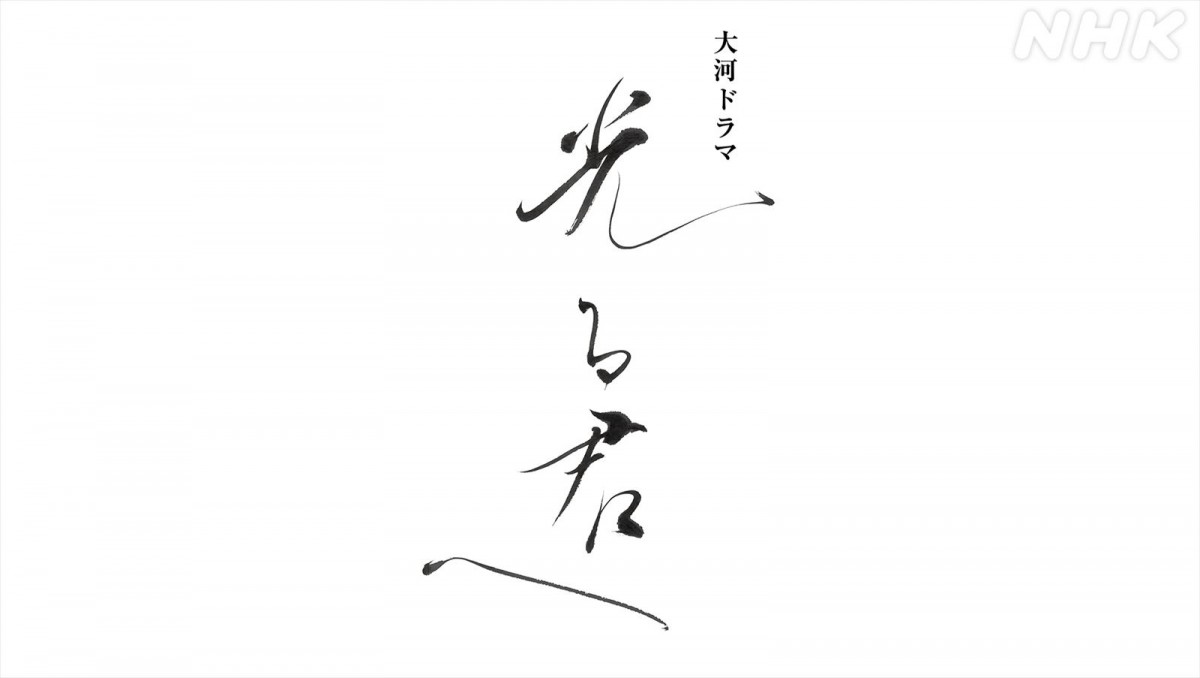 大河ドラマ
光る君へ
NHK